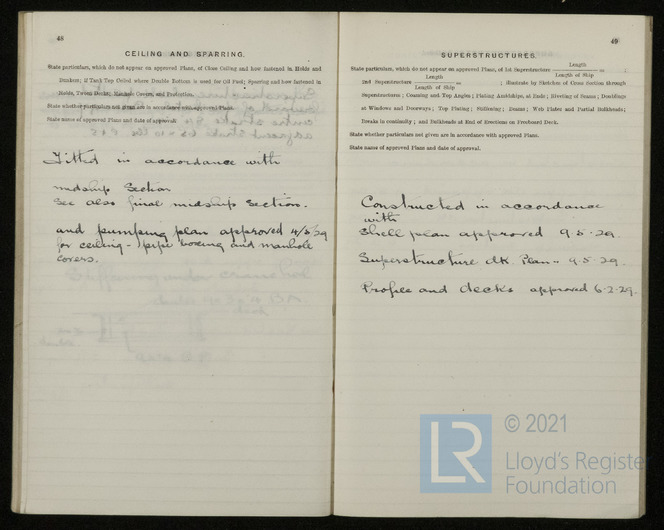 48
CEILING AND SPARRING.
State particulars, which do not appear on approved Plans, of Close Ceiling and how fastened in Holds and
Bunkers; if Tank Top Ceiled where Double Bottom is used for Oil Fuel; Sparring and how fastened in
Holds, Tween Decks; Manhole Covers, and Protection.
State whether particulars not given are in accordance with approved Plans.
State name of approved Plans and date of approval.
Fitted in accordance with
midship Section
See also final midship Section.
and pumping plan approved 4/5/29
for ceiling - pipe boxing and manhole
covers.
49
SUPERSTRUCTURES.
State particulars, which do not appear on approved Plans, of 1st Superstructure Length / Length of Ship = ;
2nd Superstructure Length / Length of Ship = ; illustrate by Sketches of Cross Section through
Superstructures; Coaming and Top Angles; Plating Amidships, at Ends; Riveting of Seams; Doublings
at Windows and Doorways; Top Plating; Stiffening; Beams; Web Plates and Partial Bulkheads;
Breaks in continuity; and Bulkheads at End of Erections on Freeboard Deck.
State whether particulars not given are in accordance with approved Plans.
State name of approved Plans and date of approval.
Constructed in accordance
with
Shell plan approved 9.5.29.
Superstructure dk. Plan " 9.5.29.
Profile and decks approved 6.2.29.
LR © 2021
Lloyd's Register
Foundation